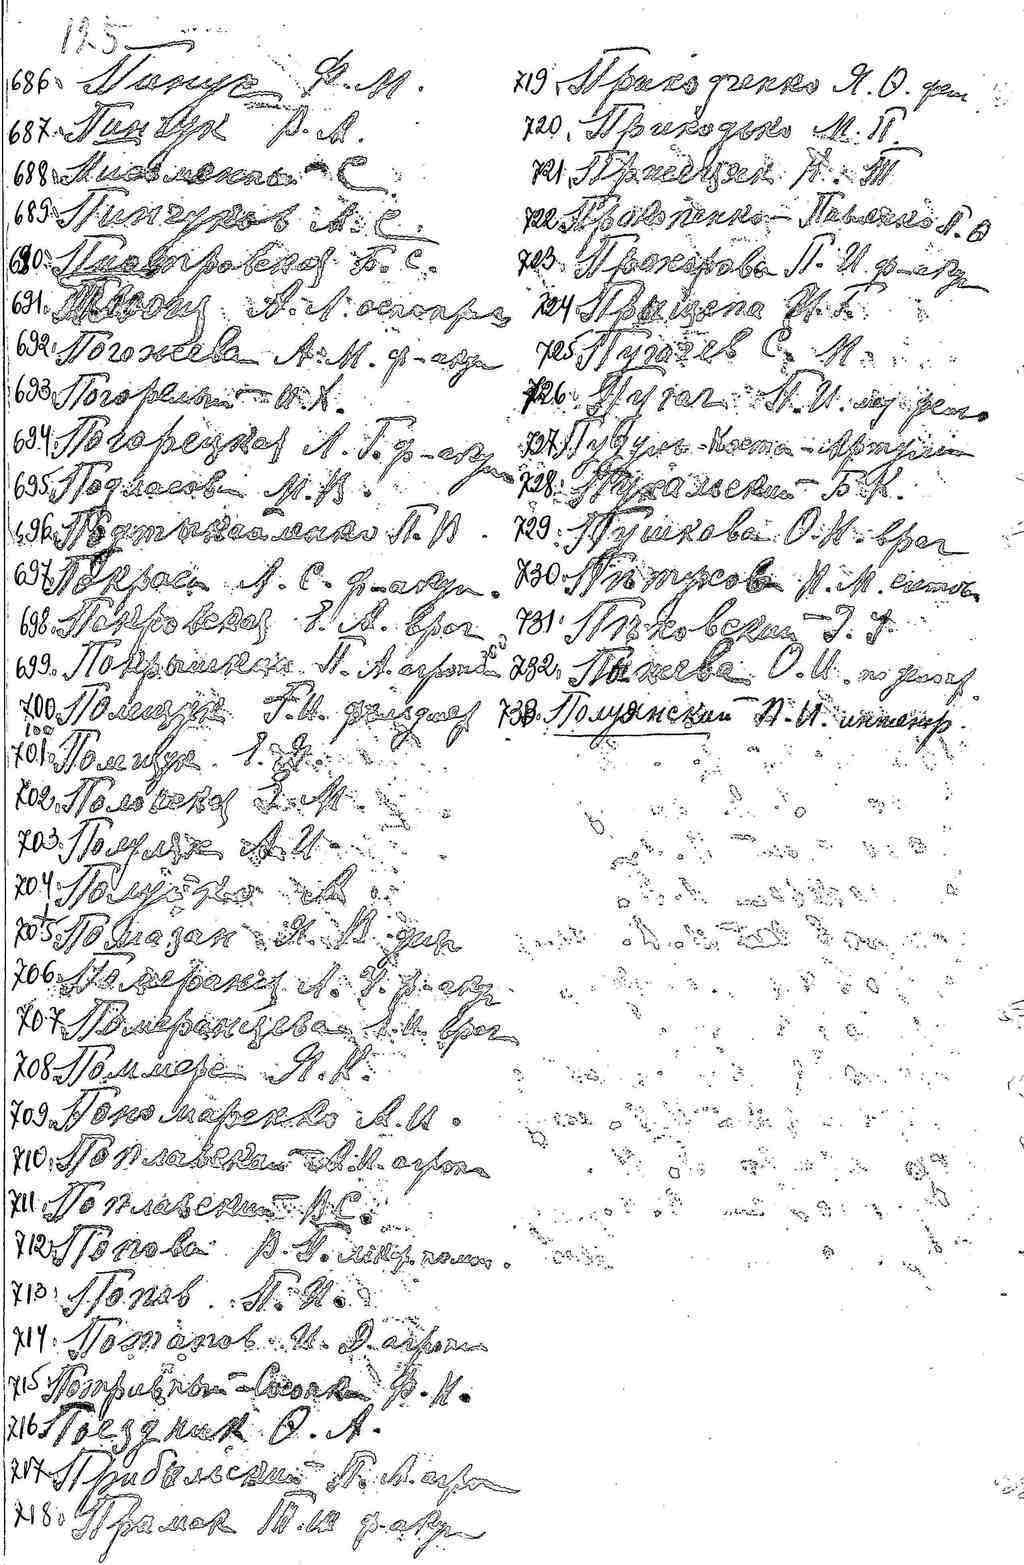 125
686. Пинук Ф. М.
687. Пинчук Р. А.
688. С.
689. Пинчуков А. С.
690. Пиотровская Б. С.
691. А. Л. оспопр
692. Погожева А. М. ф-аку
693. Погорелый И. К.
694. Погорецкая Л. Г. ф-аку
695. Подласов М. В.
696. П. В.
697. Покрас А. С. ф-акуш.
698. Покровская Е. А. врач
699. Покрышкин П. А. агроном
700. Полищук Г. И. фельдшер
100
701. Полищук Е. Я.
702. Полонская З. М.
703. Полуляк А. И.
704. Полушко А.
705. Помазан Я. В. фин
706. Померанц Л. У. ф-аку
707. Померанцева Л. И. врач
708. Поммере Я. К.
709. Пономаренко А. И.
710. Поплавский А. И. агроном
711. Поплавский В. С.
712. Попова В. Т. лекр. помощ.
713. Попов П. И.
714. Потапов И. Д. агроном
715. Ф. Н.
716. Поездник О. А.
717. Прибыльский П. А. агро
718. Прамак Т. Ш. ф-аку
719. Приходченко Я. О. фел
720. Приходько М. П.
721. Пржецзек А. Т.
722. Прокопенко- Павленко П. О
723. Прохорова П. И. ф-аку
724. Прыщепа И. Г.
725 Пугачев С. М.
726. Пугач П. И. мл. фель
727. Пудуль-Коста-Артуши
728. Пухальский Б. К.
729. Пушкова О. И. врач
730. Пятухов П. М.
731. Пяковский З. Ф.
732. Пыжева О. И.
733. Полуянский П. И. инженер.